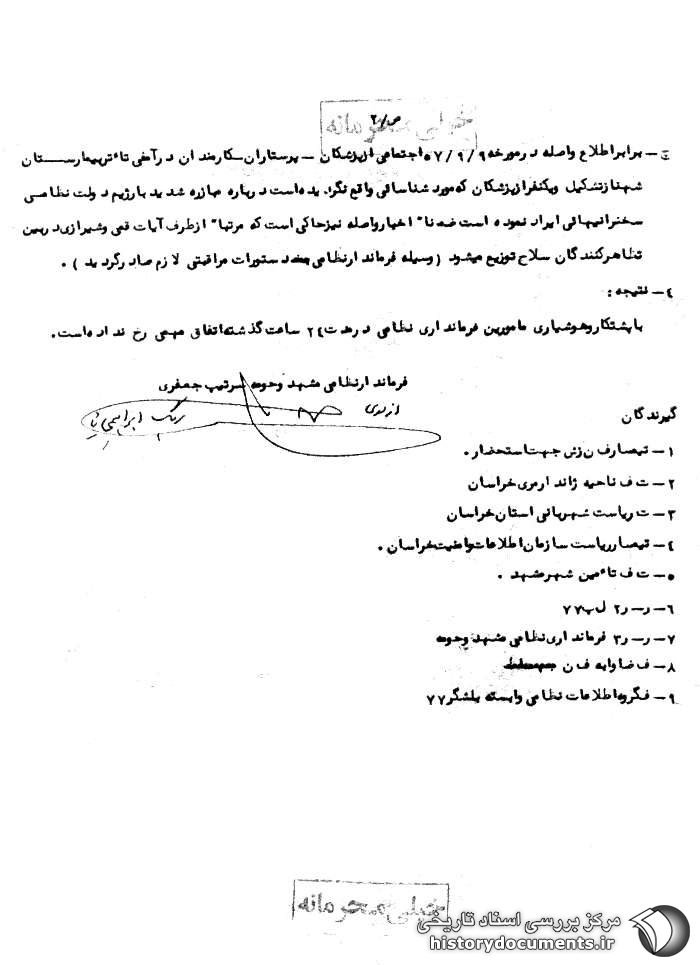 خیلی محرمانه
ص/۲
ج - برابر اطلاع واصله در مورخه ۵۷/۹/۹ اجتماعی از پزشکان - پرستاران - کارمندان در آمفی تاءتر بیمارستان
شهناز تشکیل و یکنفر از پزشکان که مورد شناسائی واقع نگردیده است درباره مبارزه شدید با رژیم دولت نظامی
سخنرانیهائی ایراد نموده است ضمنا" اخبار واصله نیز حاکی است که مرتبا" از طرف آیات قمی و شیرازی در بین
تظاهر کنندگان سلاح توزیع میشود ( وسیله فرماندار نظامی مشهد دستورات مراقبتی لازم صادر گردید ) .
٤ - نتیجه :
با پشتکار و هوشیاری مامورین فرمانداری نظامی در مدت ۲٤ ساعت گذشته اتفاق مهمی رخ نداده است .
فرماندار نظامی مشهد و حومه سرتیپ جعفری
از طرف
سرهنگ ابراهیمی
گیرندگان
۱ - تیمسار ف ن زش جهت استحضار .
۲ - ت ف ناحیه ژاندارمری خراسان
۳ - ت ریاست شهربانی استان خراسان
٤ - تیمسار ریاست سازمان اطلاعات و امنیت خراسان .
۵ - ت ف تاءمین شهر مشهد .
۶ - ر - ر۲ ل پ ۷۷
۷ - ر - ر۳ فرمانداری نظامی مشهد و حومه
۸ - ف ضد اوابه ف ن
۹ - ف گروه اطلاعات نظامی وابسته بلشگر ۷۷
خیلی محرمانه
مرکز بررسی اسناد تاریخی
historydocuments.ir